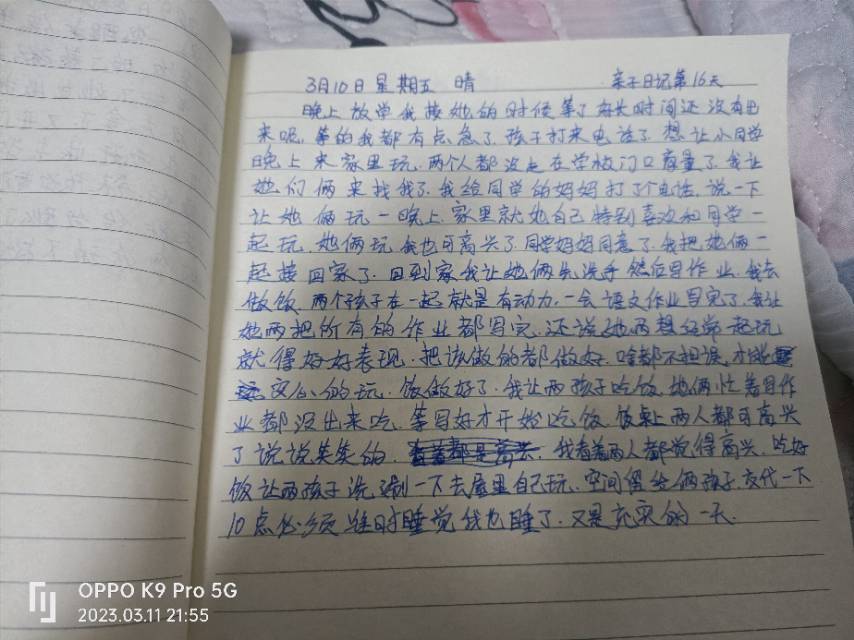 3月10日 星期五 晴 亲子日记第16天
晚上放学我接她的时候等了好长时间还没有出
来呢,等的我都有点急了,孩子打来电话了,想让小同学
晚上来家里玩,两个人都没走在学校门口商量了,我让
她们俩来找我了,我给同学的妈妈打了个电话,说一下
让她俩玩一晚上,家里就她自己特别喜欢和同学一
起玩,她俩玩我也可高兴了,同学妈妈同意了,我把她俩一
起接回家了,回到家我让她俩先洗手然后写作业,我去
做饭,两个孩子在一起就是有动力,一会语文作业写完了,我让
她两把所有的作业都写完,还说她两想经常一起玩
就得好好表现,把该做的都做好,啥都不耽误,才能
开心的玩,饭做好了,我让两孩子吃饭,她俩忙着写作
业都没出来吃,等写好才开始吃饭,饭桌上两人都可高兴
了说说笑笑的,我看着两人都觉得高兴,吃好
饭让两孩子洗漱一下去屋里自己玩,空间留给俩孩子,交代一下
10点必须准时睡觉我也睡了,又是充实的一天.
OPPO K9 Pro 5G
2023.03.11 21:55